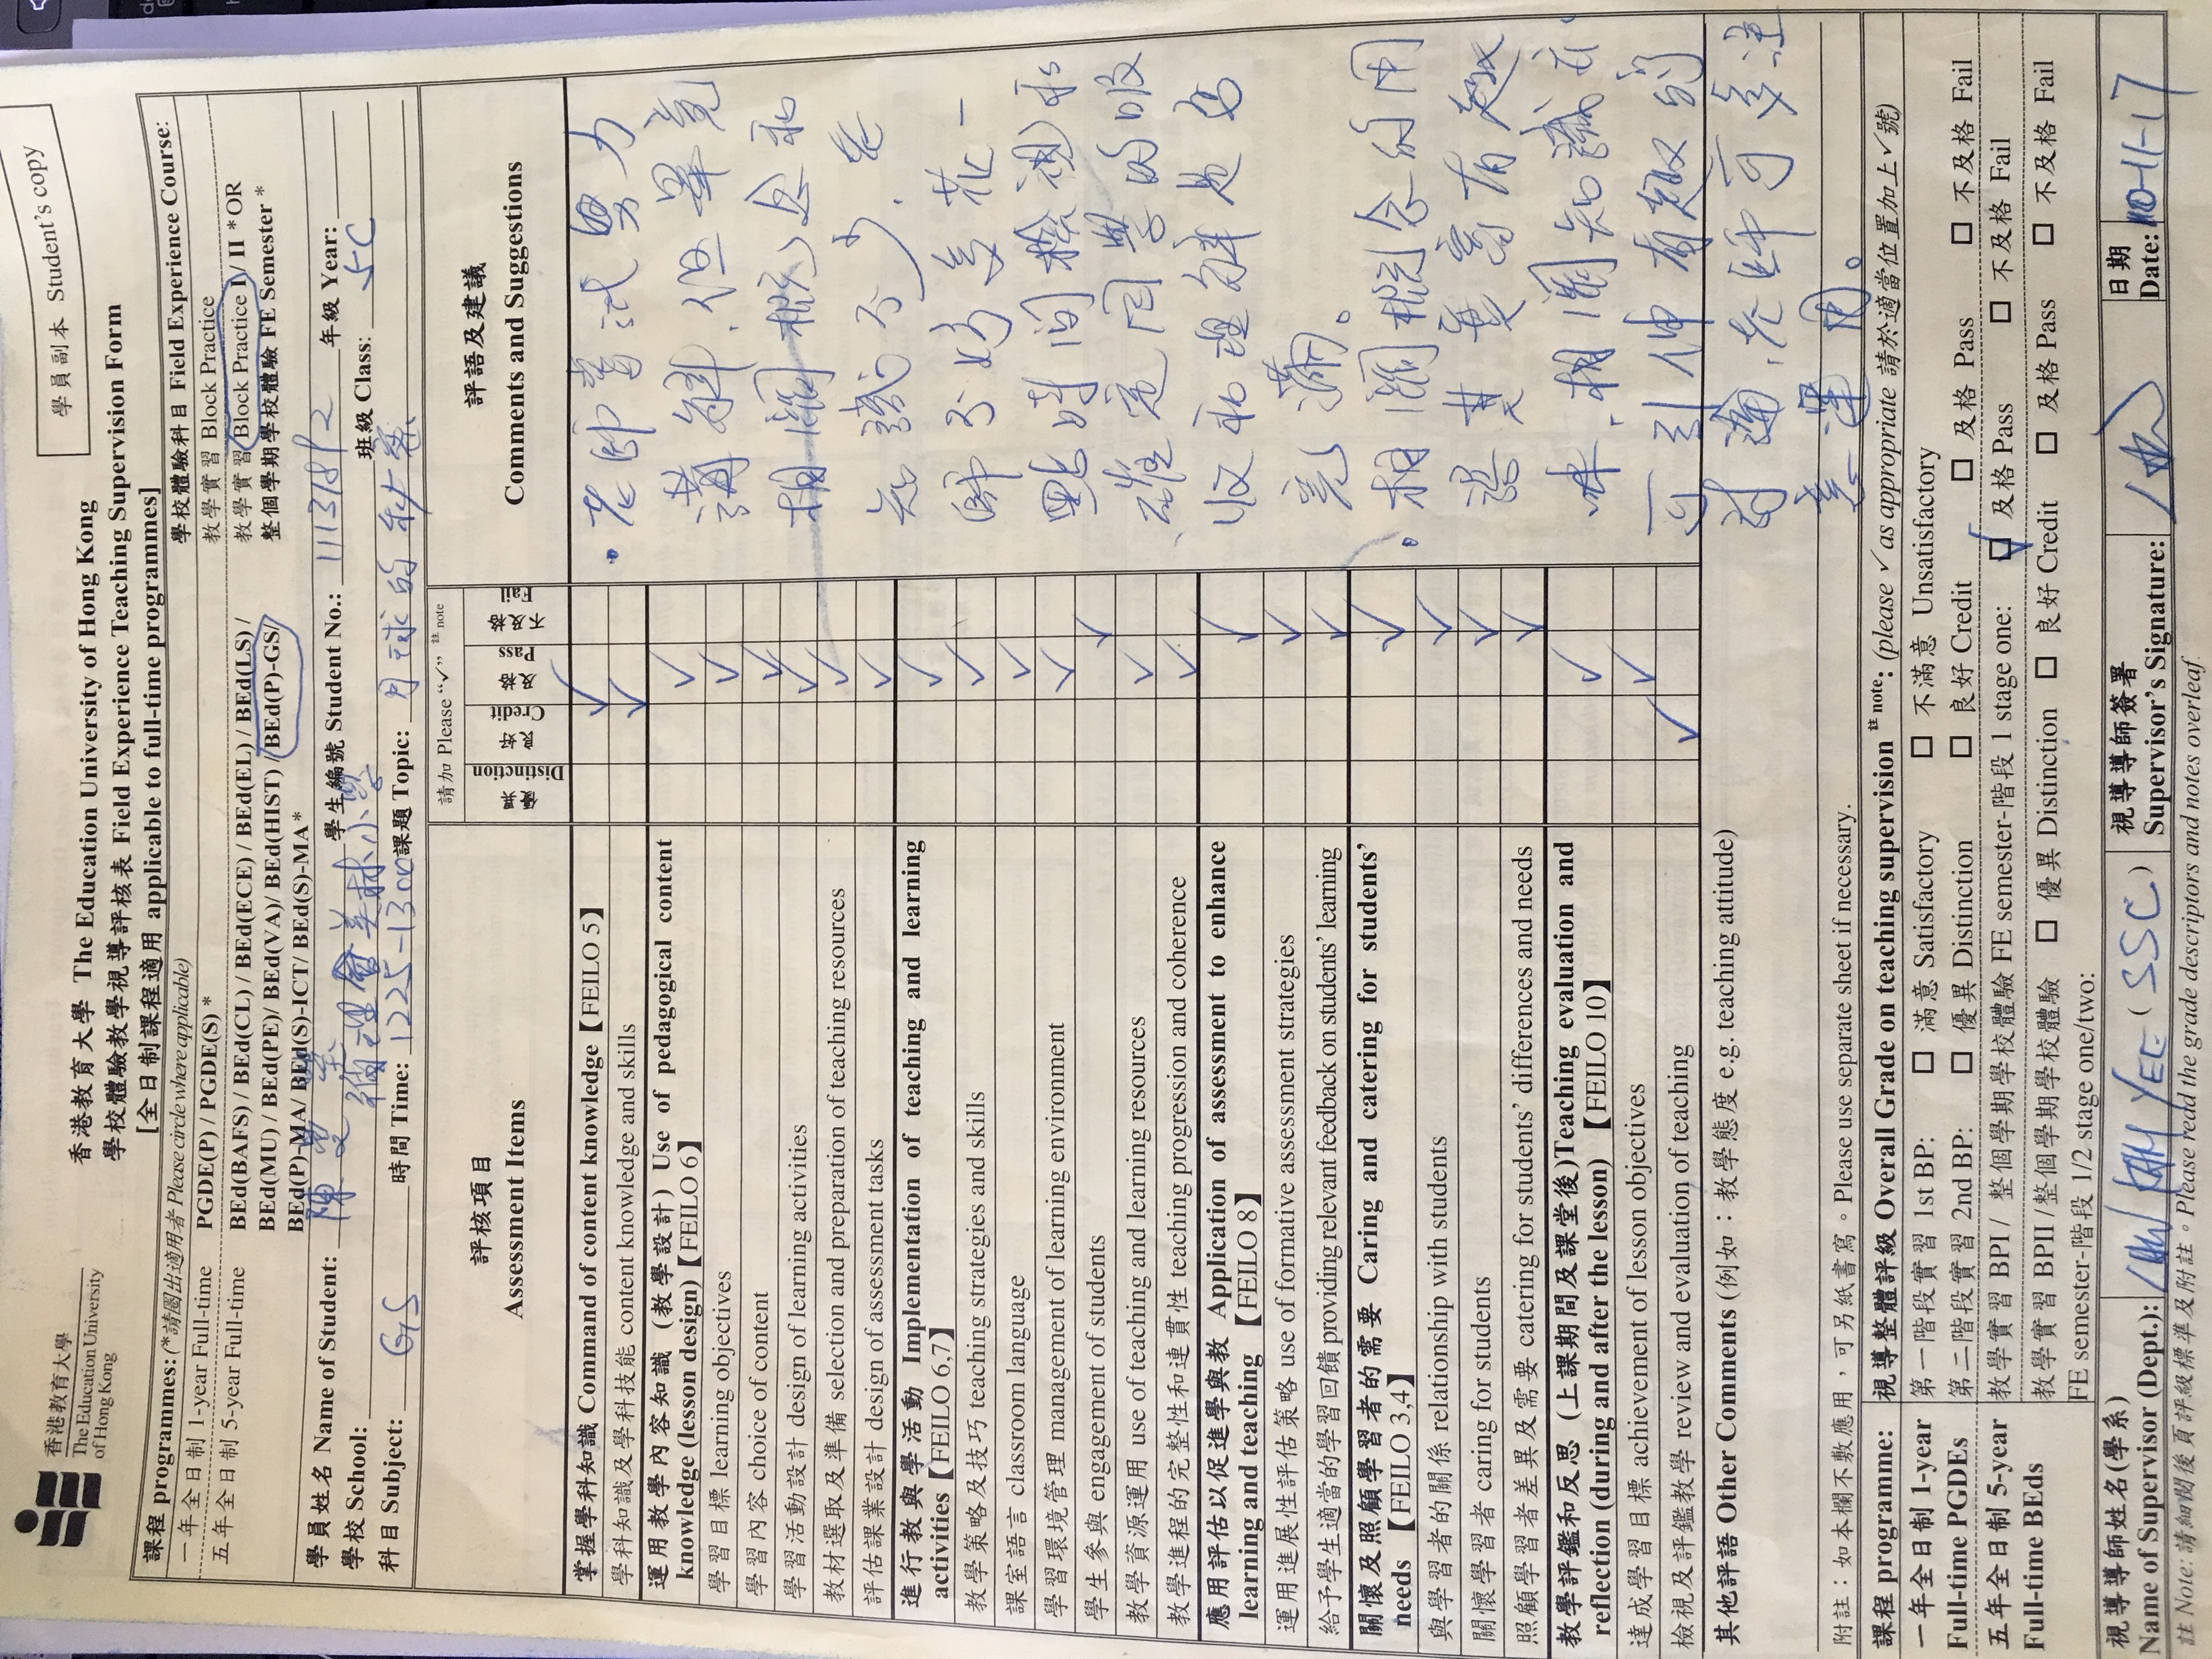 學員副本 Student's copy
香港教育大學
The Education University
of Hong Kong
香港教育大學 The Education University of Hong Kong
學校體驗教學視導評核表 Field Experience Teaching Supervision Form
[全日制課程適用 applicable to full-time programmes]
課程 programmes: (*請圈出適用者 Please circle where applicable)
一年全日制 1-year Full-time PGDE(P) / PGDE(S)*
五年全日制 5-year Full-time BEd(BAFS) / BEd(CL) / BEd(ECE) / BEd(EL) / BEd(LS) /
BEd(MU) / BEd(PE)/ BEd(VA)/ BEd(HIST) /BEd(P)-GS/
BEd(P)-MA/ BEd(S)-ICT/ BEd(S)-MA*
學校體驗科目 Field Experience Course:
教學實習 Block Practice
教學實習 Block Practice I / II *OR
整個學期學校體驗 FE Semester *
學員姓名 Name of Student: 陳 學生編號 Student No.: 年級 Year:
學校 School: 林小學 班級 Class: 5C
科目 Subject: GS 時間 Time: 1225-1300 課題 Topic: 月球的秘密
評核項目
Assessment Items
請加 Please “✓” 註 note
優異 Distinction
良好 Credit
及格 Pass
不及格 Fail
評語及建議
Comments and Suggestions
掌握學科知識 Command of content knowledge【FEILO 5】
學科知識及學科技能 content knowledge and skills
運用教學內容知識 (教學設計) Use of pedagogical content
knowledge (lesson design)【FEILO 6】
學習目標 learning objectives
學習內容 choice of content
學習活動設計 design of learning activities
教材選取及準備 selection and preparation of teaching resources
評估課業設計 design of assessment tasks
進行教與學活動 Implementation of teaching and learning
activities【FEILO 6,7】
教學策略及技巧 teaching strategies and skills
課室語言 classroom language
學習環境管理 management of learning environment
學生參與 engagement of students
教學資源運用 use of teaching and learning resources
教學進程的完整性和連貫性 teaching progression and coherence
應用評估以促進學與教 Application of assessment to enhance
learning and teaching 【FEILO 8】
運用進展性評估策略 use of formative assessment strategies
給予學生適當的學習回饋 providing relevant feedback on students' learning
關懷及照顧學習者的需要 Caring and catering for students'
needs 【FEILO 3,4】
與學習者的關係 relationship with students
關懷學習者 caring for students
照顧學習者差異及需要 catering for students' differences and needs
教學評鑑和反思 (上課期間及課堂後)Teaching evaluation and
reflection (during and after the lesson) 【FEILO 10】
達成學習目標 achievement of lesson objectives
檢視及評鑑教學 review and evaluation of teaching
• 老師嘗試努力
講解,但畢竟
相關概念和
知識不少,老
師不妨多花一
點時間檢視和
確定同學的吸
收和理解是否
完滿。
• 相關概念的用
語其實富有趣
味,相關知識亦
可引伸有趣的
討論,老師可多注
意運用。
其他評語 Other Comments (例如:教學態度 e.g. teaching attitude)
附註:如本欄不敷應用,可另紙書寫。Please use separate sheet if necessary.
課程 programme: 視導整體評級 Overall Grade on teaching supervision 註 note: (please ✓ as appropriate 請於適當位置加上✓號)
一年全日制 1-year 第一階段實習 1st BP: □ 滿意 Satisfactory □ 不滿意 Unsatisfactory
Full-time PGDEs 第二階段實習 2nd BP: □ 優異 Distinction □ 良好 Credit □ 及格 Pass □ 不及格 Fail
五年全日制 5-year 教學實習 BPI / 整個學期學校體驗 FE semester-階段 1 stage one: ☑ 及格 Pass □ 不及格 Fail
Full-time BEds 教學實習 BPII /整個學期學校體驗 □ 優異 Distinction □ 良好 Credit □ 及格 Pass □ 不及格 Fail
FE semester-階段 1/2 stage one/two:
視導導師姓名(學系)
Name of Supervisor (Dept.): YEE (SSC)
視導導師簽署
Supervisor's Signature:
日期
Date: 10-11-17
註 Note: 請細閱後頁評級標準及附註。Please read the grade descriptors and notes overleaf.